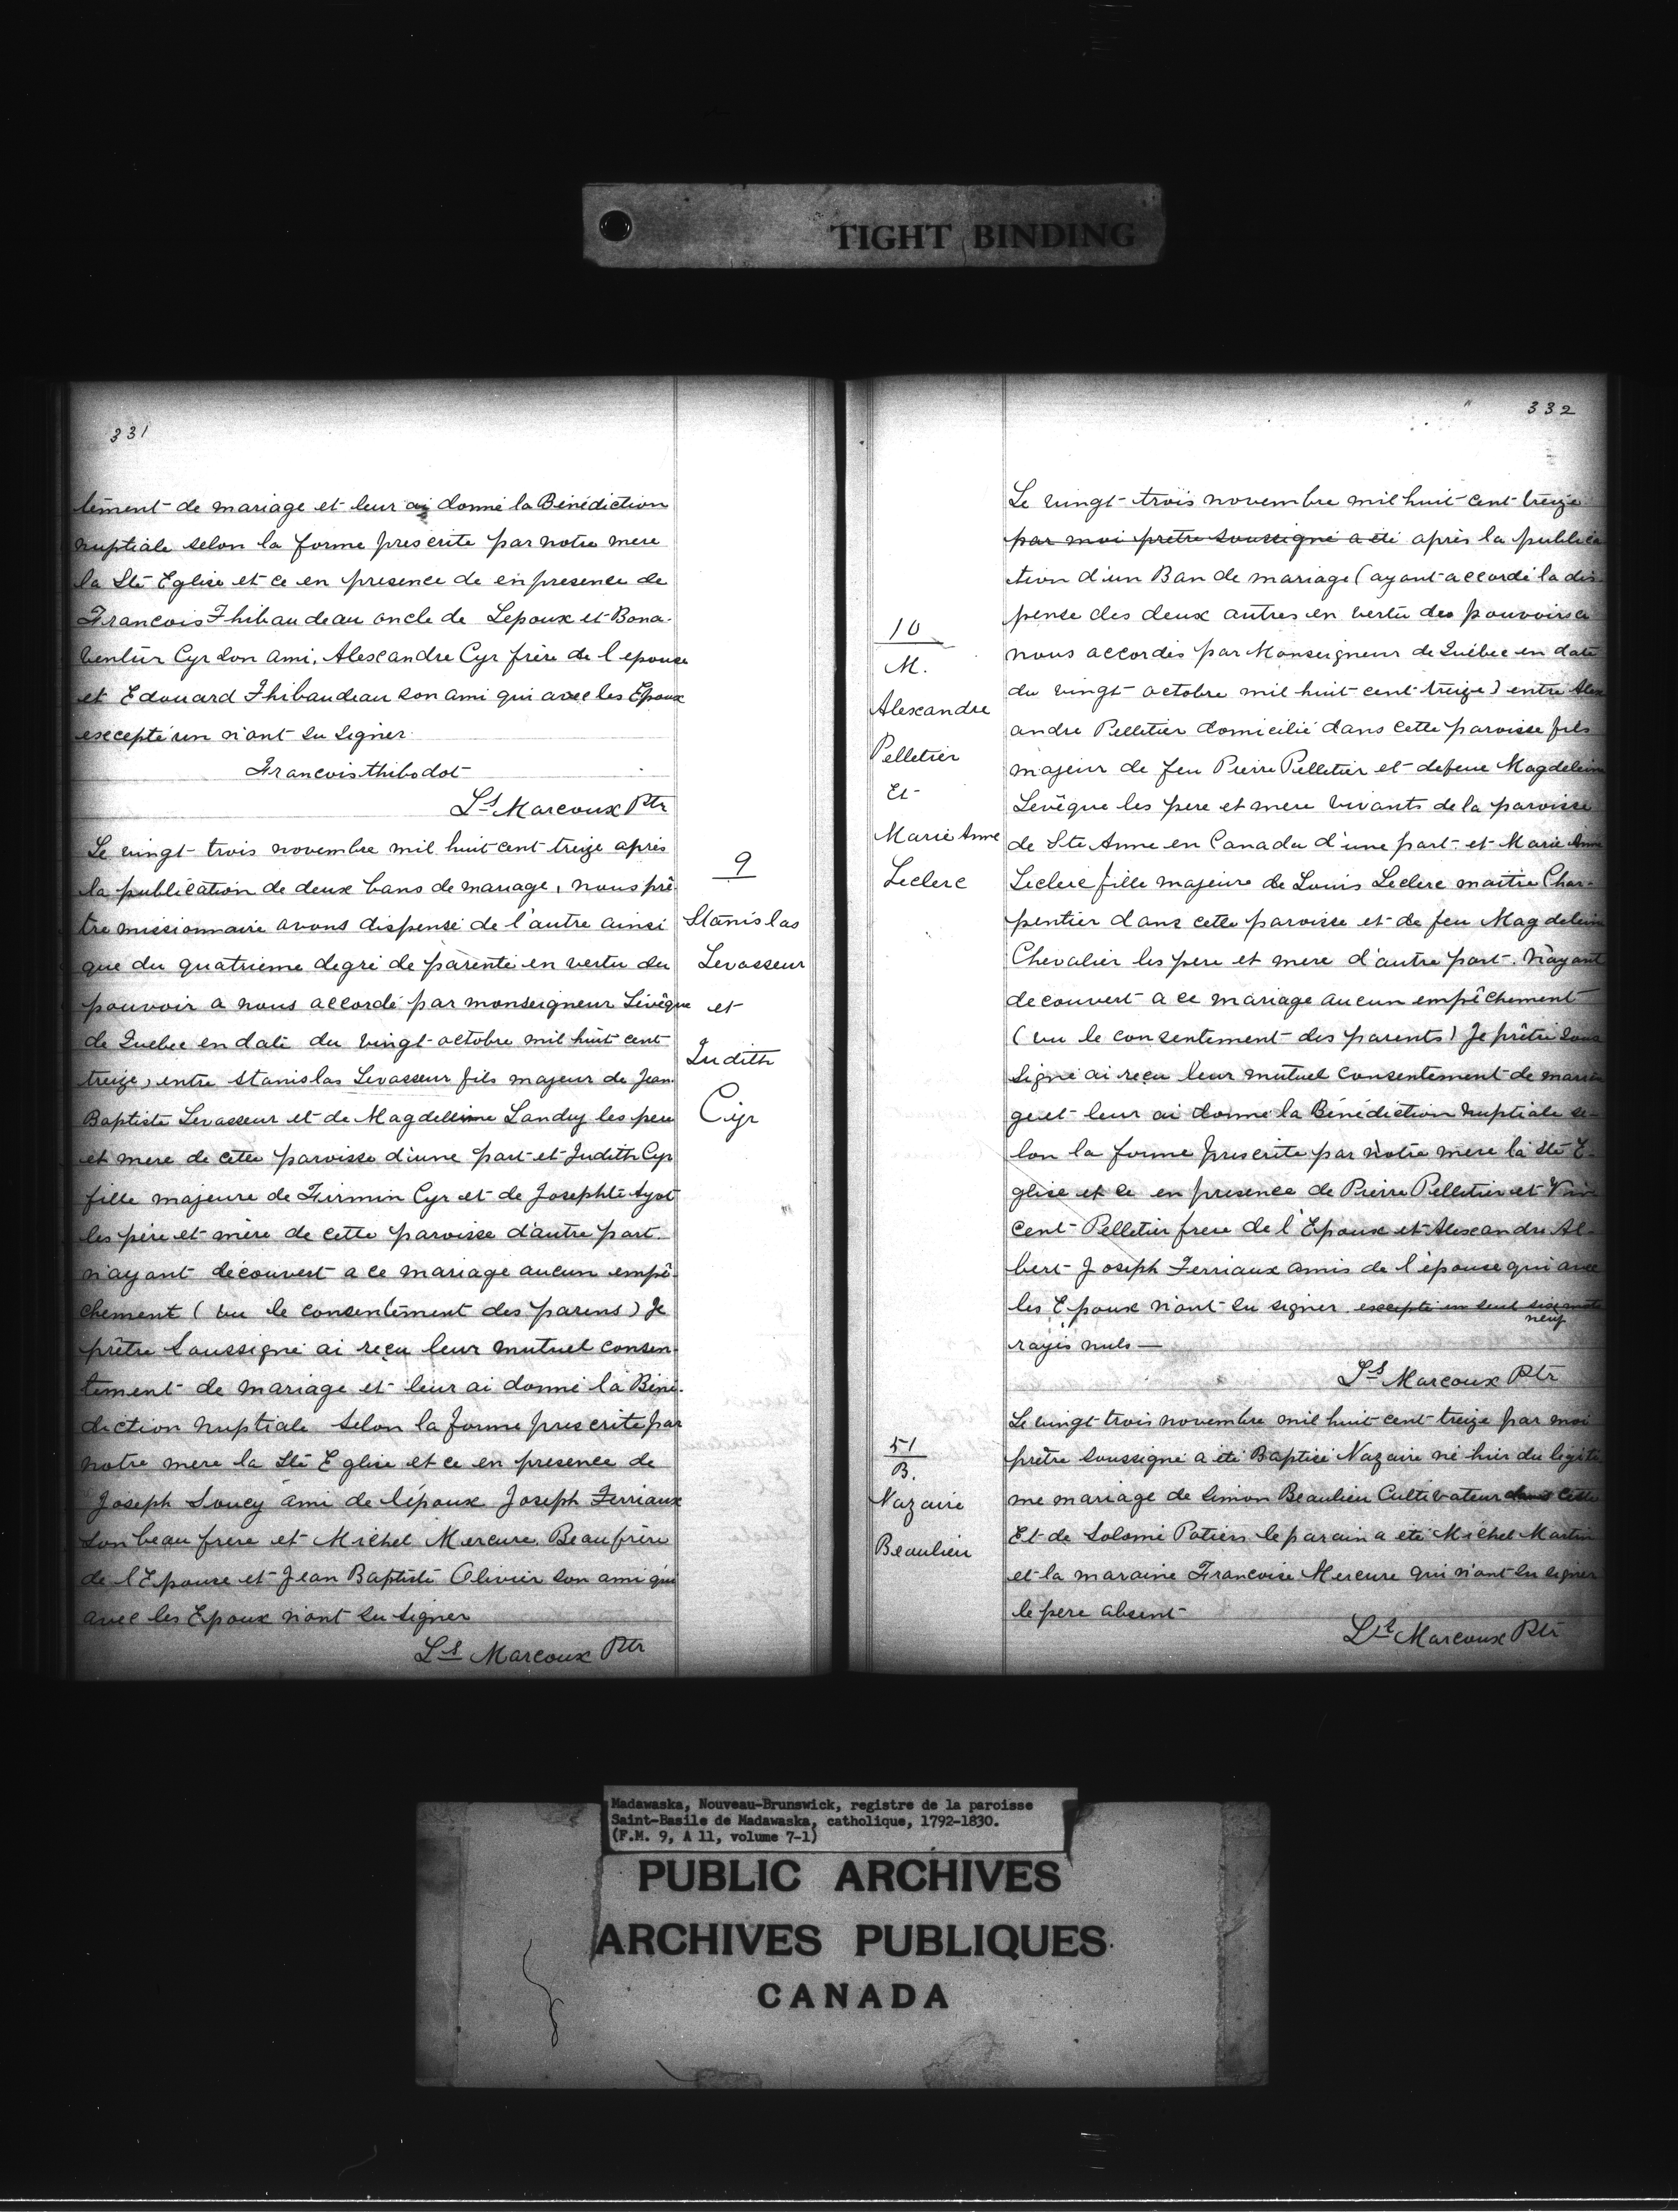 TIGHT BINDING
331
tement de mariage et leur ai donné la Bénédiction
nuptiale selon la forme prescrite par notre mere
la Ste Eglise et ce en presence de en presence de
Francois Thibaudeau oncle de Lepoux et Bona-
ventur Cyr son ami, Alexandre Cyr frère de l'epouse
et Edouard Thibaudeau son ami qui avec les Epoux
excepté un n'ont su signer
Francois thibodot
Ls Marcoux Ptr
Le vingt trois novembre mil huit cent treize après
la publication de deux bans de mariage, nous prê-
tre missionnaire avons dispensé de l'autre ainsi
que du quatrieme degré de parenté en vertu du
pouvoir a nous accordé par monseigneur Lévêque
de Quebec en date du vingt octobre mil huit cent
treize, entre Stanislas Levasseur fils majeur de Jean
Baptiste Levasseur et de Magdeleine Landry les pere
et mere de cette paroisse d'une part et Judith Cyr
fille majeure de Firmin Cyr et de Josephte Ayot
les père et mère de cette paroisse d'autre part.
n'ayant découvert a ce mariage aucun empê-
chement (vu le consentement des parens) Je
prêtre Soussigné ai reçu leur mutuel consen-
tement de mariage et leur ai donné la Béné-
diction nuptiale selon la forme prescrite par
notre mere la Ste Eglise et ce en presence de
Joseph Soucy ami de l'époux Joseph Terriaux
son beau frere et Michel Mercure Beaufrère
de l'Epouse et Jean Baptiste Olivier son ami qui
avec les Epoux n'ont su signer
Ls Marcoux Ptr
9
Stanislas
Levasseur
et
Judith
Cyr
332
10
M.
Alexandre
Pelletier
Et
Marie Anne
Leclerc
Le vingt trois novembre mil huit cent treize
par moi prêtre soussigné a été après la publica
tion d'un Ban de mariage (ayant accordé la dis-
pense des deux autres en vertu des pouvoirs a
nous accordés par Monseigneur de Québec en date
du vingt octobre mil huit cent treize) entre Alex
andre Pelletier domicilié dans cette paroisse fils
majeur de feu Pierre Pelletier et defeue Magdeleine
Levêque les pere et mere vivants de la paroisse
de Ste Anne en Canada d'une part et Marie Anne
Leclerc fille majeure de Louis Leclerc maitre Char-
pentier dans cette paroisse et de feu Magdeleine
Chevalier les pere et mere d'autre part. N'ayant
decouvert a ce mariage aucun empêchement
(vu le consentement des parents) Je prêtre sous
signé ai reçu leur mutuel consentement de maria
ge et leur ai donné la Bénédiction nuptiale se-
lon la forme prescrite par notre mere la Ste E-
glise et ce en presence de Pierre Pelletier et Vin
cent Pelletier frere de l'Epoux et Alexandre Al-
bert Joseph Terriaux amis de l'épouse qui avec
les Epoux n'ont su signer excepté un seul six mots
neuf
rayés nuls —
Ls Marcoux Ptr
51
B.
Nazaire
Beaulieu
Le vingt trois novembre mil huit cent treize par moi
prêtre soussigné a été Baptisé Nazaire né hier du légiti
me mariage de Simon Beaulieu Cultivateur dans cette
Et de Solomé Potiers le parain a été Michel Martin
et la maraine Francoise Mercure qui n'ont su signer
le pere absent
Ls Marcoux Ptr
Madawaska, Nouveau-Brunswick, registre de la paroisse
Saint-Basile de Madawaska, catholique, 1792-1830.
(F.M. 9, A 11, volume 7-1)
PUBLIC ARCHIVES
ARCHIVES PUBLIQUES
CANADA